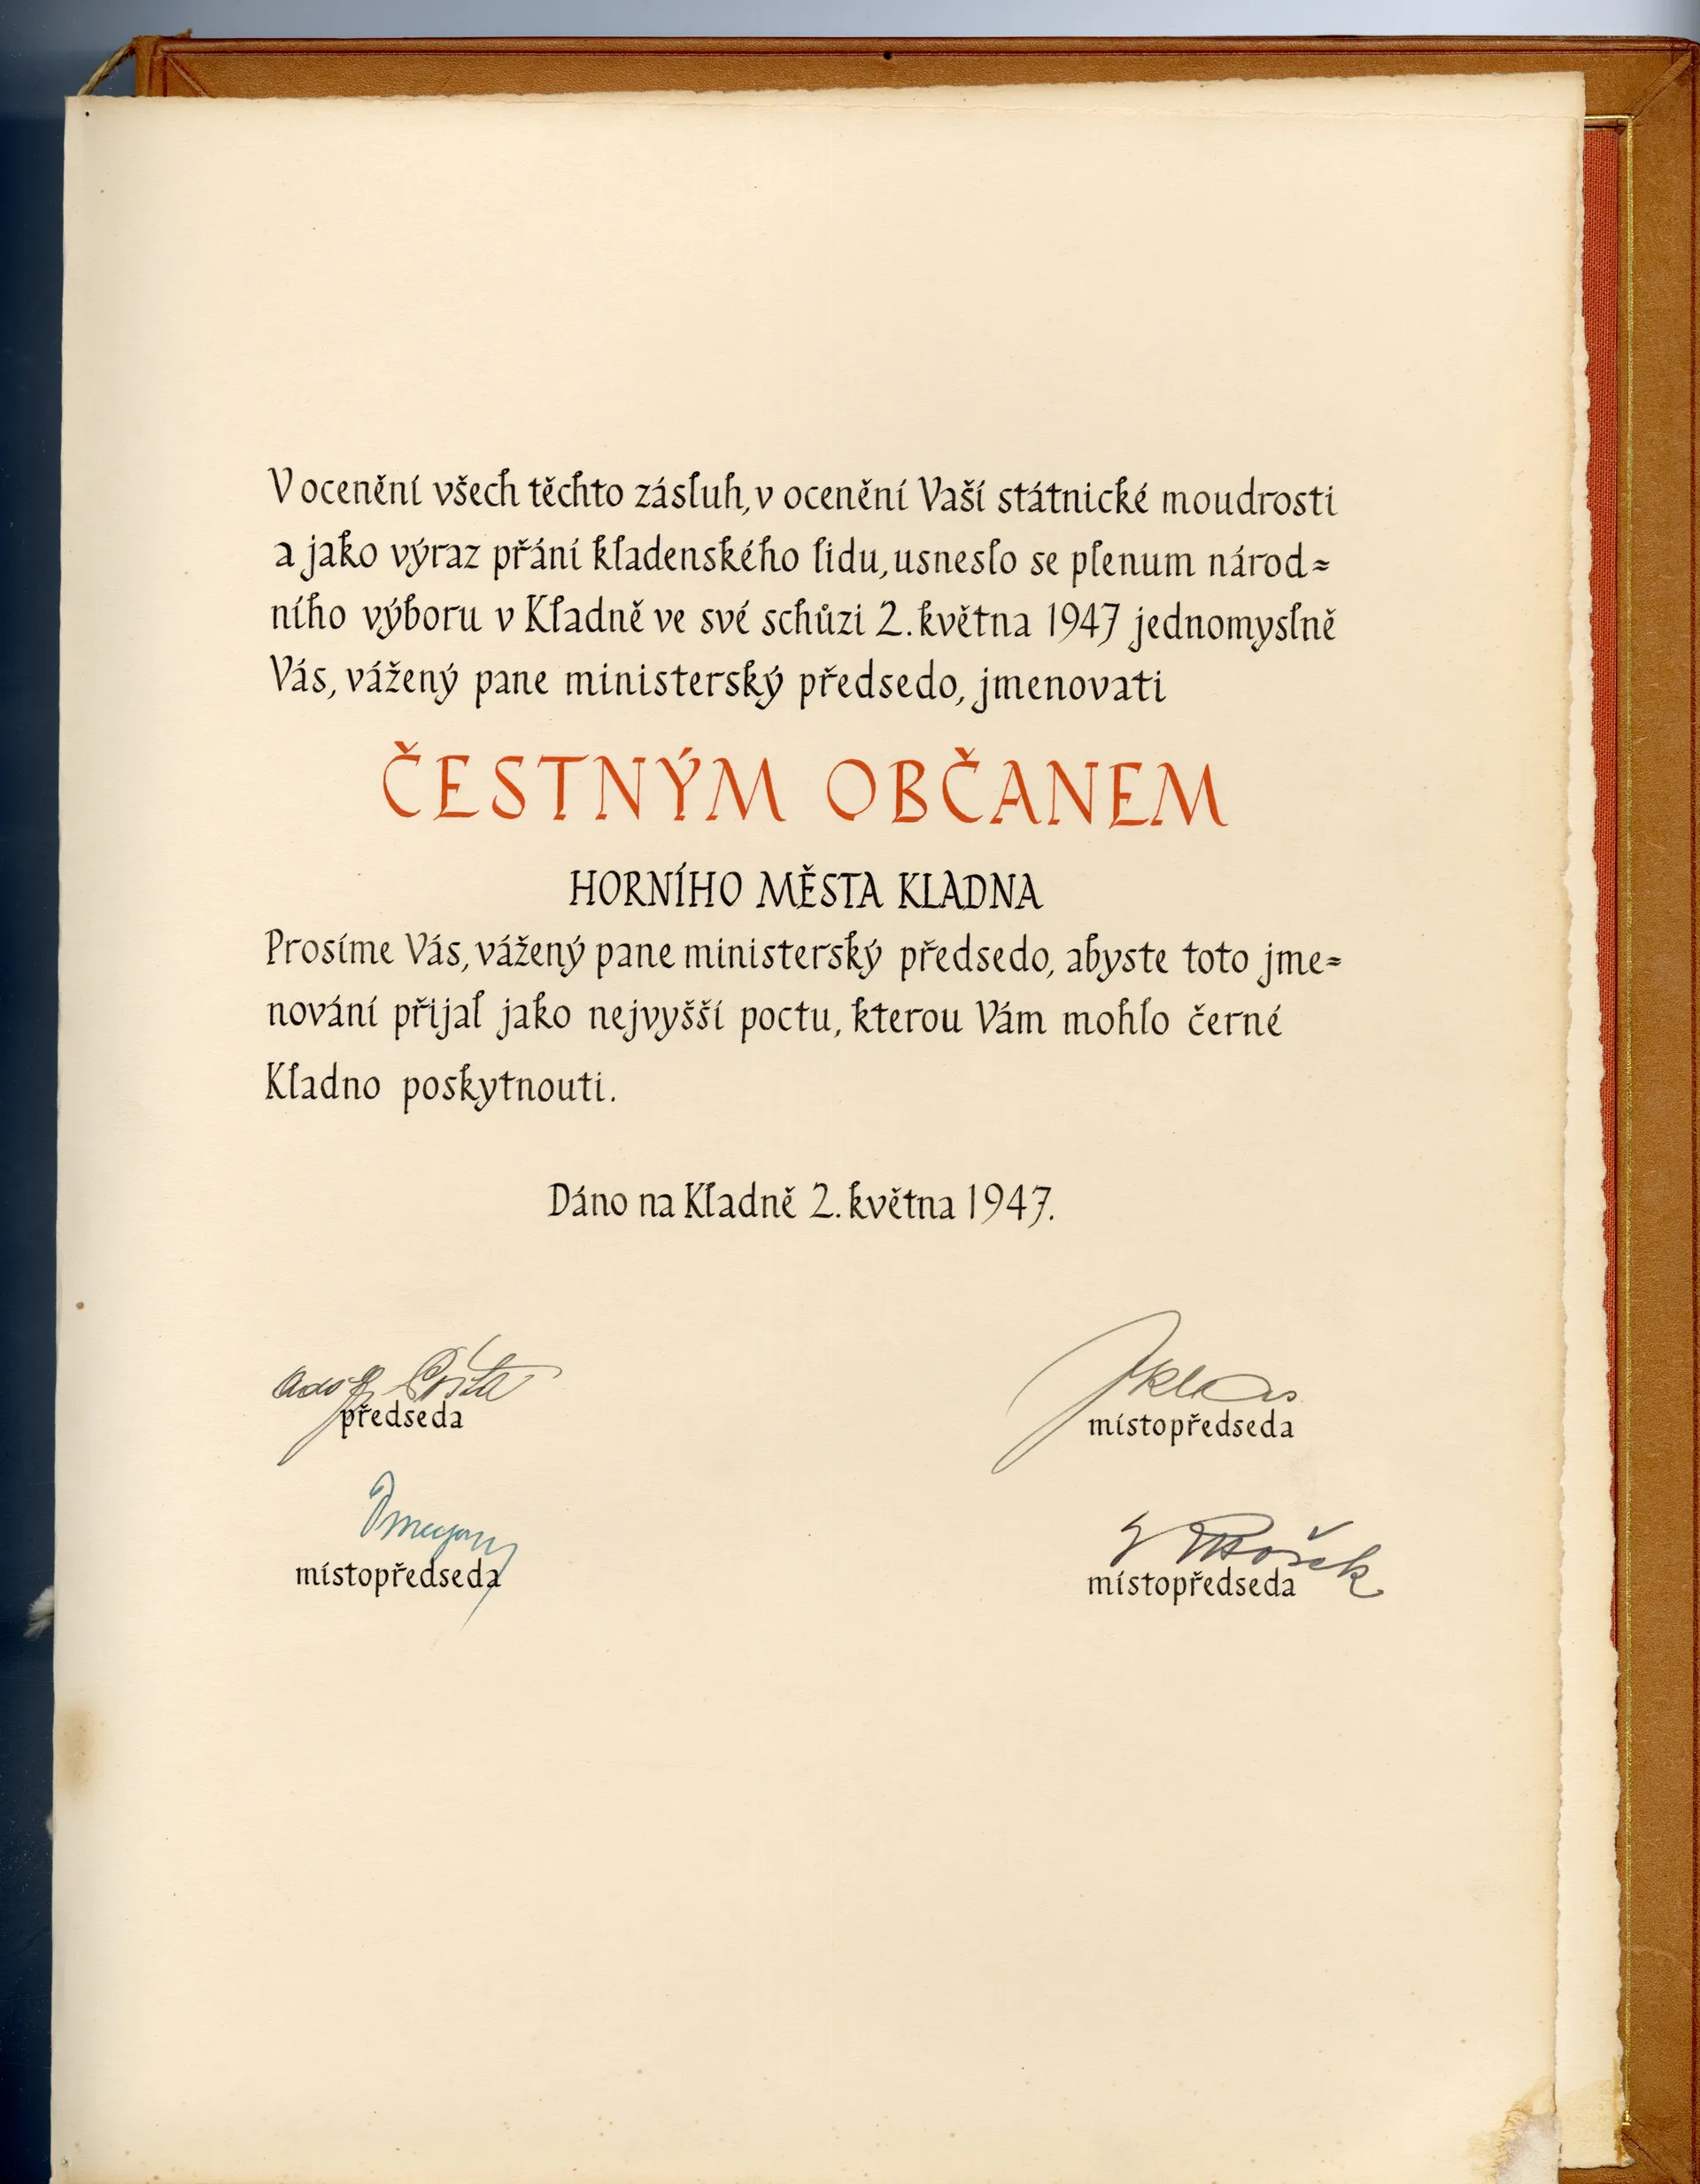 V ocenění všech těchto zásluh, v ocenění Vaší státnické moudrosti
a jako výraz přání kladenského lidu, usneslo se plenum národ=
ního výboru v Kladně ve své schůzi 2. května 1947 jednomyslně
Vás, vážený pane ministerský předsedo, jmenovati
ČESTNÝM OBČANEM
HORNÍHO MĚSTA KLADNA
Prosíme Vás, vážený pane ministerský předsedo, abyste toto jme=
nování přijal jako nejvyšší poctu, kterou Vám mohlo černé
Kladno poskytnouti.
Dáno na Kladně 2. května 1947.
předseda
místopředseda
místopředseda
místopředseda